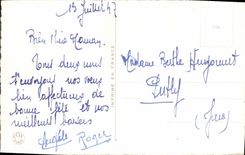 13 Juillet 47
Bien chère Maman
Tout deux nous
t'envoyons nos vœux
bien affectueux de
bonne fête et nos
meilleurs baisers
Angèle Roger
Madame Berthe
(Jura)